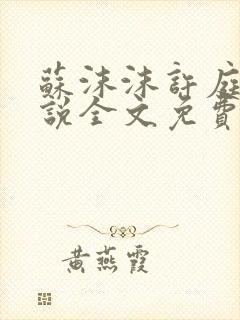 蘇沫沫許庭
說全文免費
黃燕霞